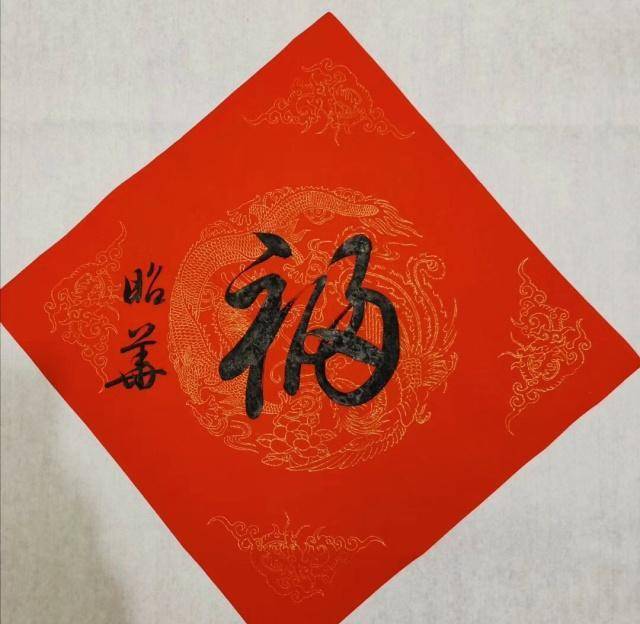 福
昭華